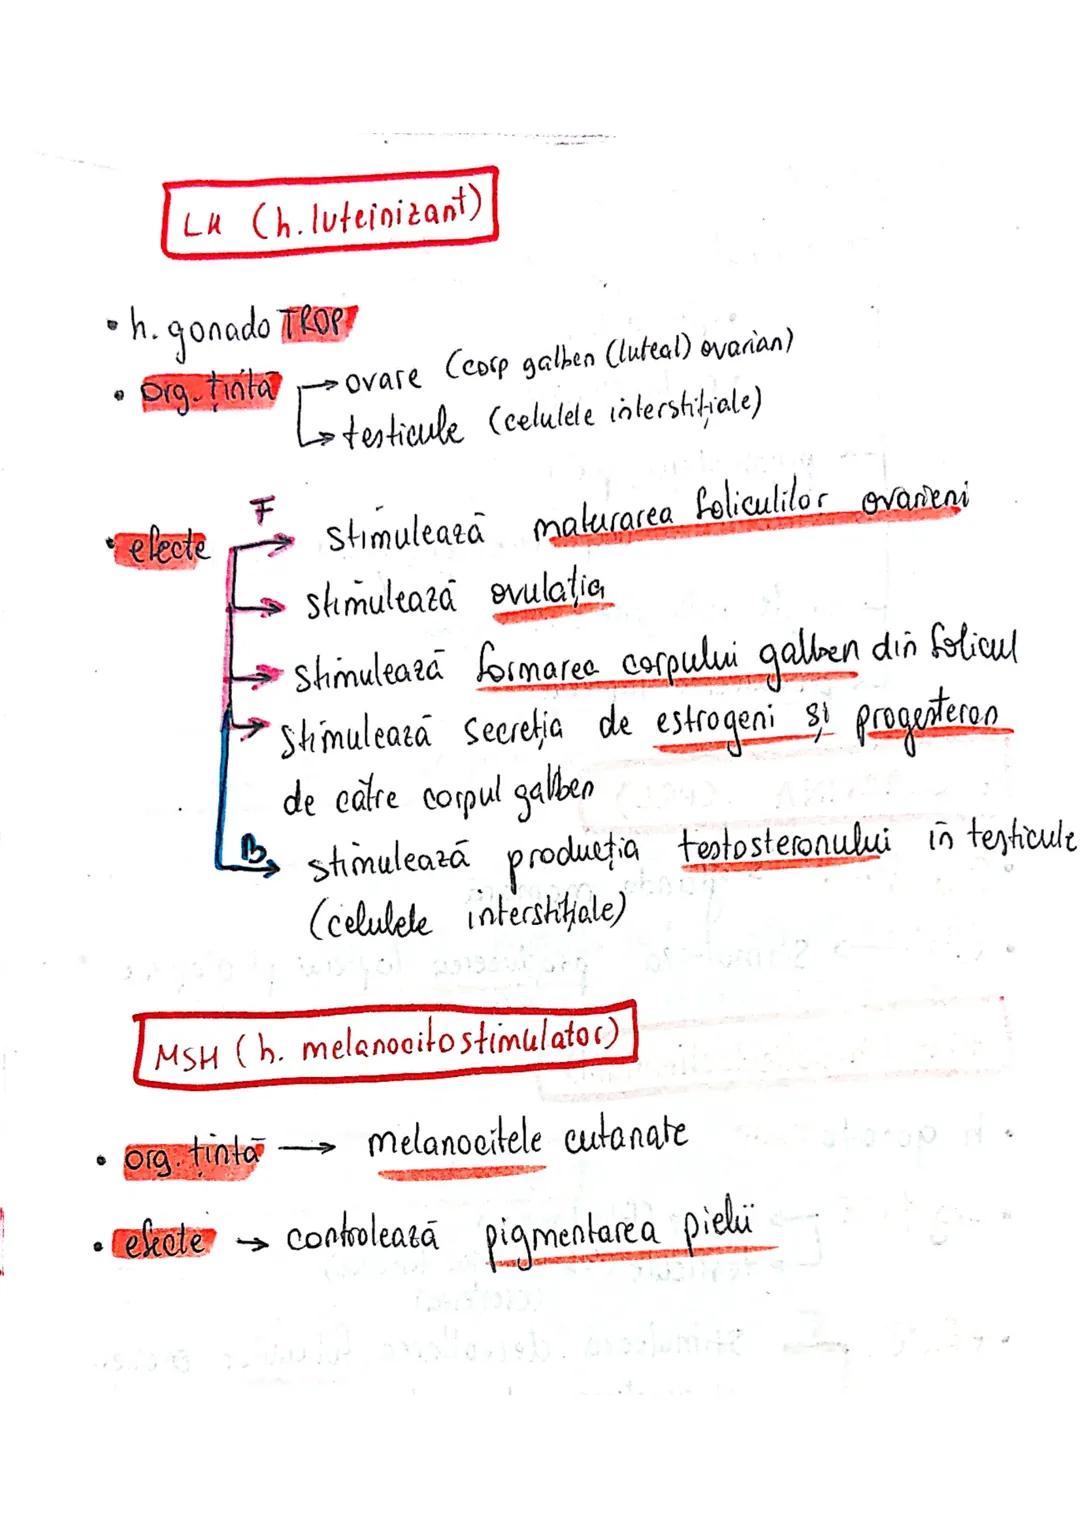 LH (h. luteinizant)
• h. gonado TROP
• org. țintă → ovare (corp galben (luteal) ovarian)
→ testicule (celulele interstițiale)
• efecte F → stimulează maturarea foliculilor ovarieni
→ stimulează ovulația
→ stimulează formarea corpului galben din folicul
→ stimulează secreția de estrogeni și progesteron
de către corpul galben
B → stimulează producția testosteronului în testicule
(celulele interstițiale)
MSH (h. melanocitostimulator)
• org. țintă → melanocitele cutanate
• efecte → controlează pigmentarea pielii